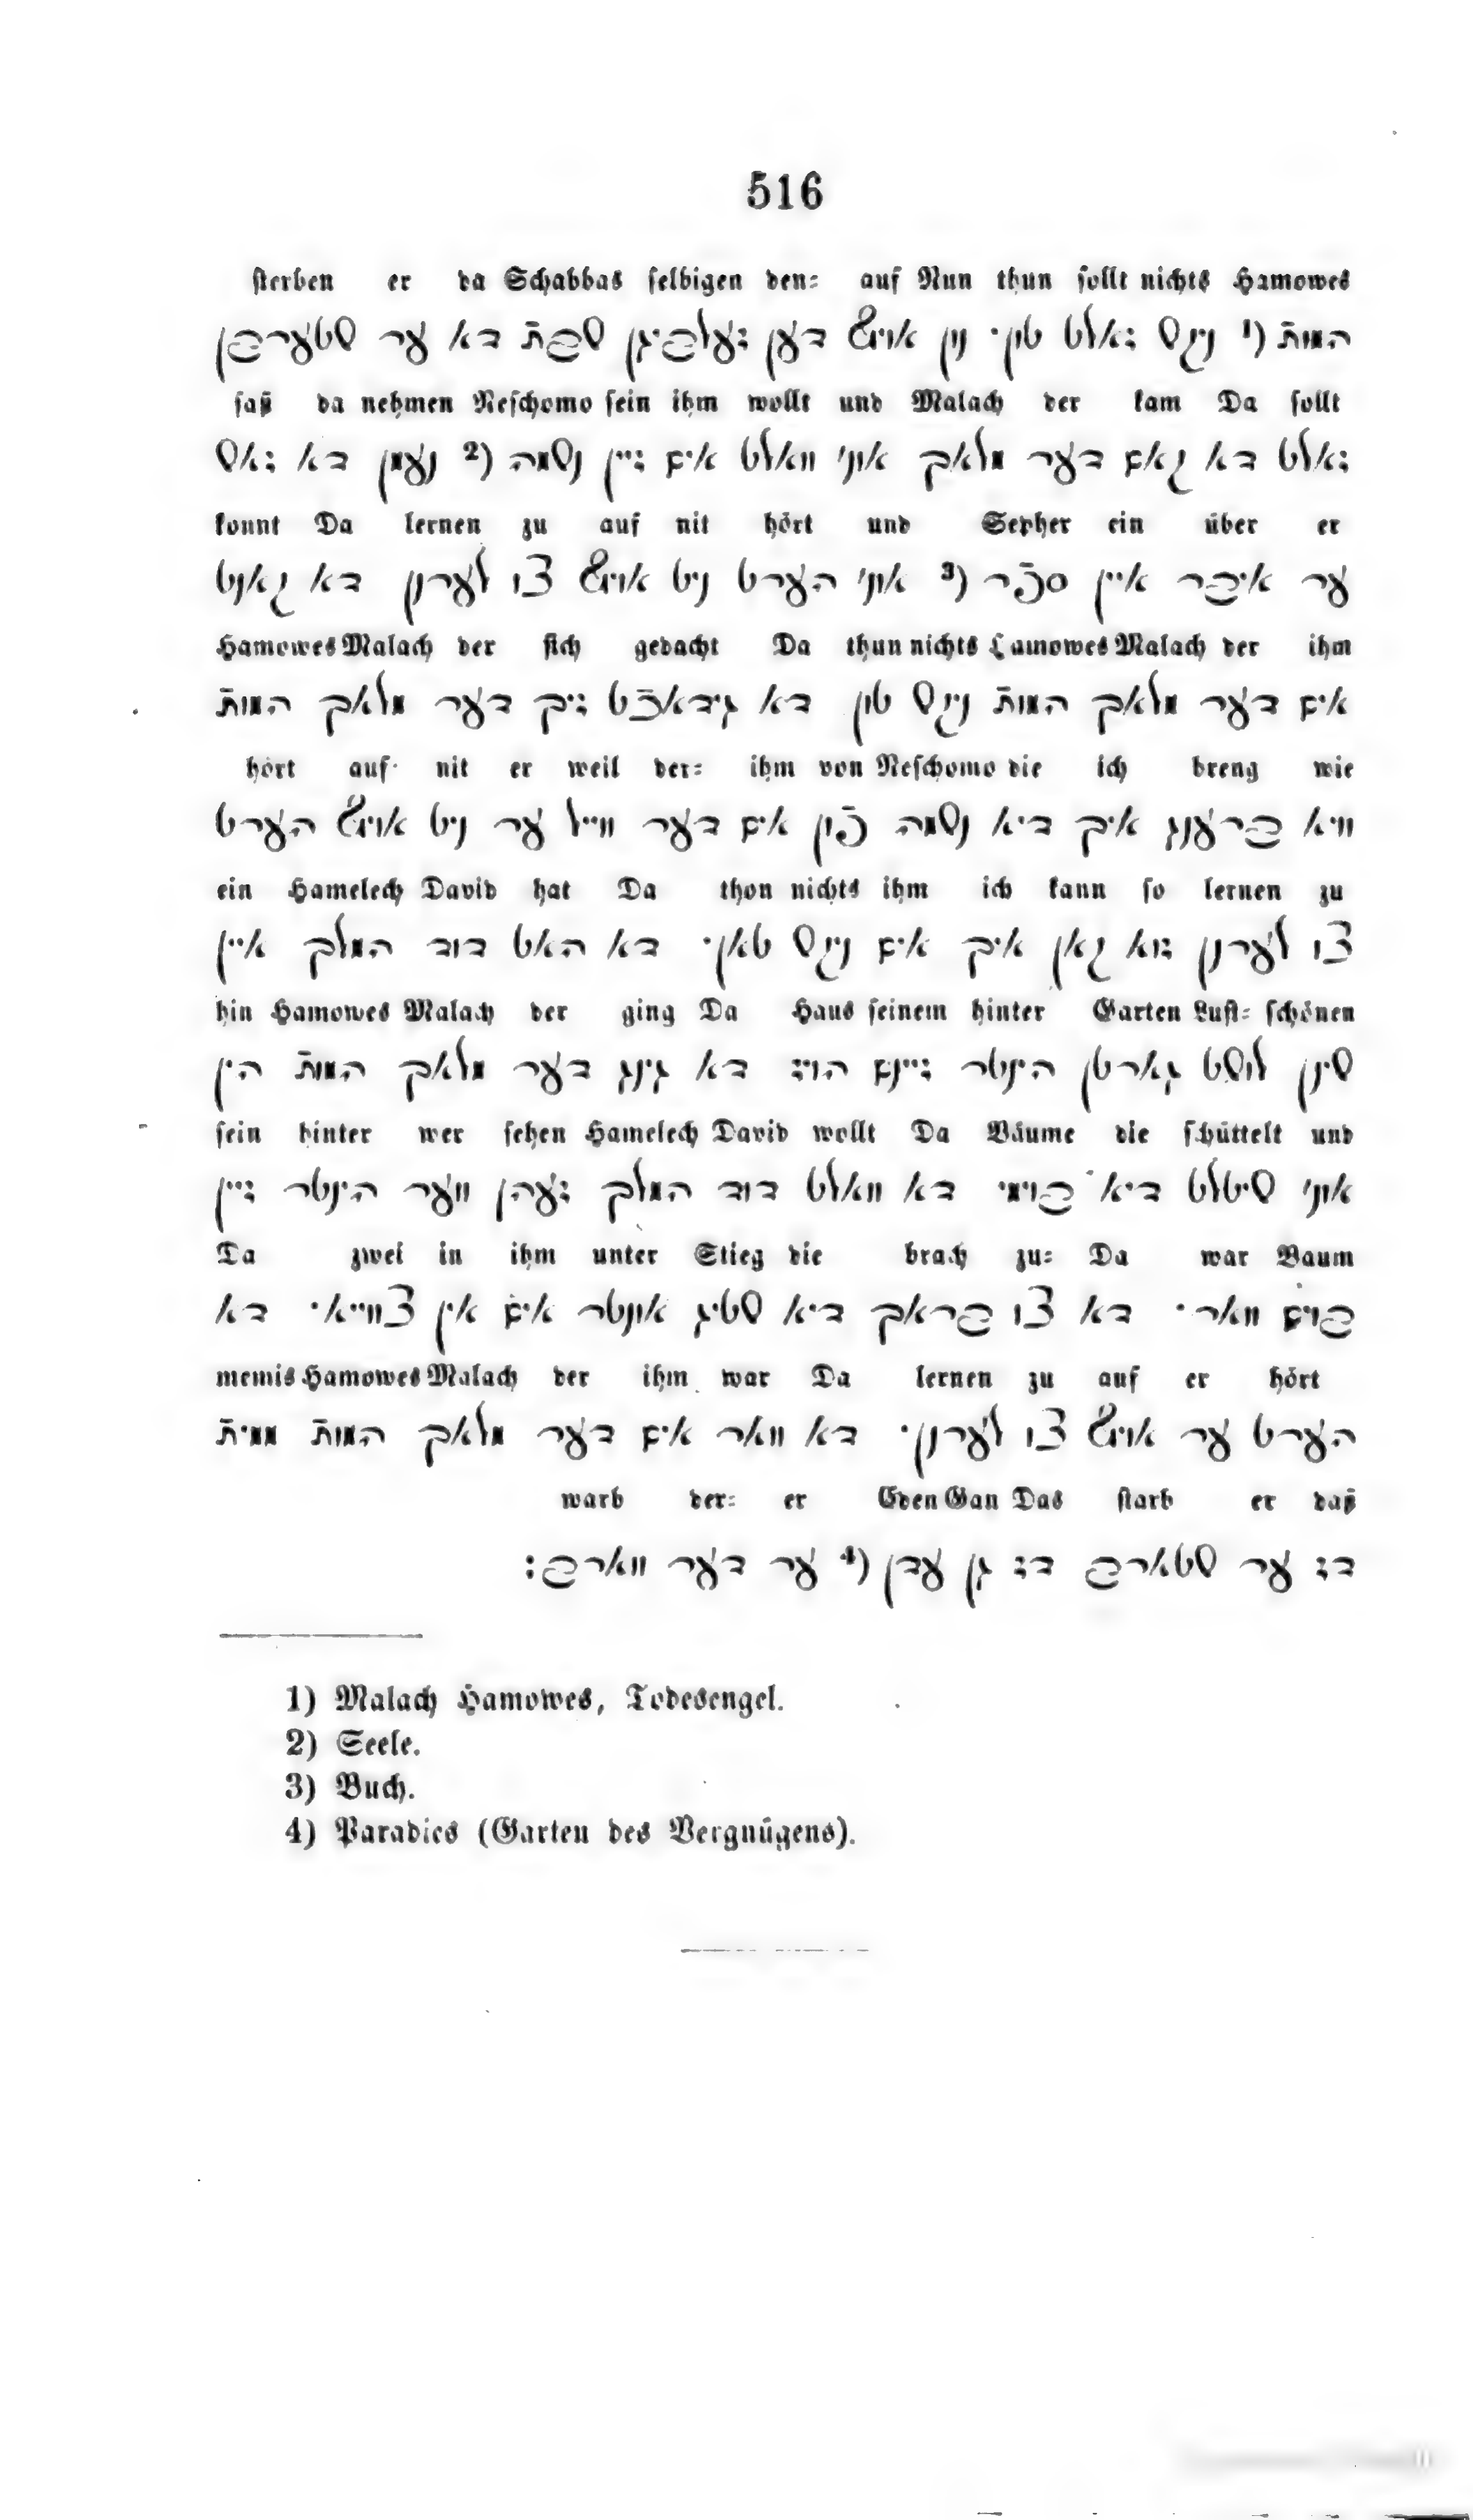 516
sterben er da Schabbas selbigen den= auf Nun thun sollt nichts Hamowes
המות (1 ניקס זאלט טון· נון אויף דען זעלביגן שבת דא ער שטערבן
saß da nehmen Neschomo sein ihm wollt und Malach der kam Da sollt
זאלט דא קאם דער מלאך אוני וואלט אים זיין נשמה (2 נעמן דא זאס
konnt Da lernen zu auf nit hört und Sepher ein über er
ער איבר איין ספֿר (3 אוני הערט ניט אויף צו לערנן דא קאנט
Hamowes Malach der sich gedacht Da thun nichts Hamowes Malach der ihm
אים דער מלאך המות ניקס טון דא גידאכֿט זיך דער מלאך המות
hört auf nit er weil der= ihm von Neschomo die ich breng wie
וויא ברענג איך דיא נשמה פֿון אים דער ווייל ער ניט אויף הערט
ein Hamelech David hat Da thon nichts ihm ich kann so lernen zu
צו לערנן זוא קאן איך אים ניקס טאן· דא האט דוד המלך איין
hin Hamowes Malach der ging Da Haus seinem hinter Garten Lust= schönen
שינן לושט גארטן הינטר זיינם הויז דא גינג דער מלאך המות הין
sein hinter wer sehen Hamelech David wollt Da Bäume die schüttelt und
אוני שיטלט דיא בוימי דא וואלט דוד המלך זעהן ווער הינטר זיין
Da zwei in ihm unter Stieg die brach zu= Da war Baum
בוים וואר· דא צו בראך דיא שטיג אונטר אים אין צווייא· דא
memis Hamowes Malach der ihm war Da lernen zu auf er hört
הערט ער אויף צו לערנן· דא וואר אים דער מלאך המות ממית
warb der= er Eden Gan Das starb er daß
דז ער שטארב דז גן עדן (4 ער דער ווארב:
1) Malach Hamowes, Todesengel.
2) Seele.
3) Buch.
4) Paradies (Garten des Vergnügens).